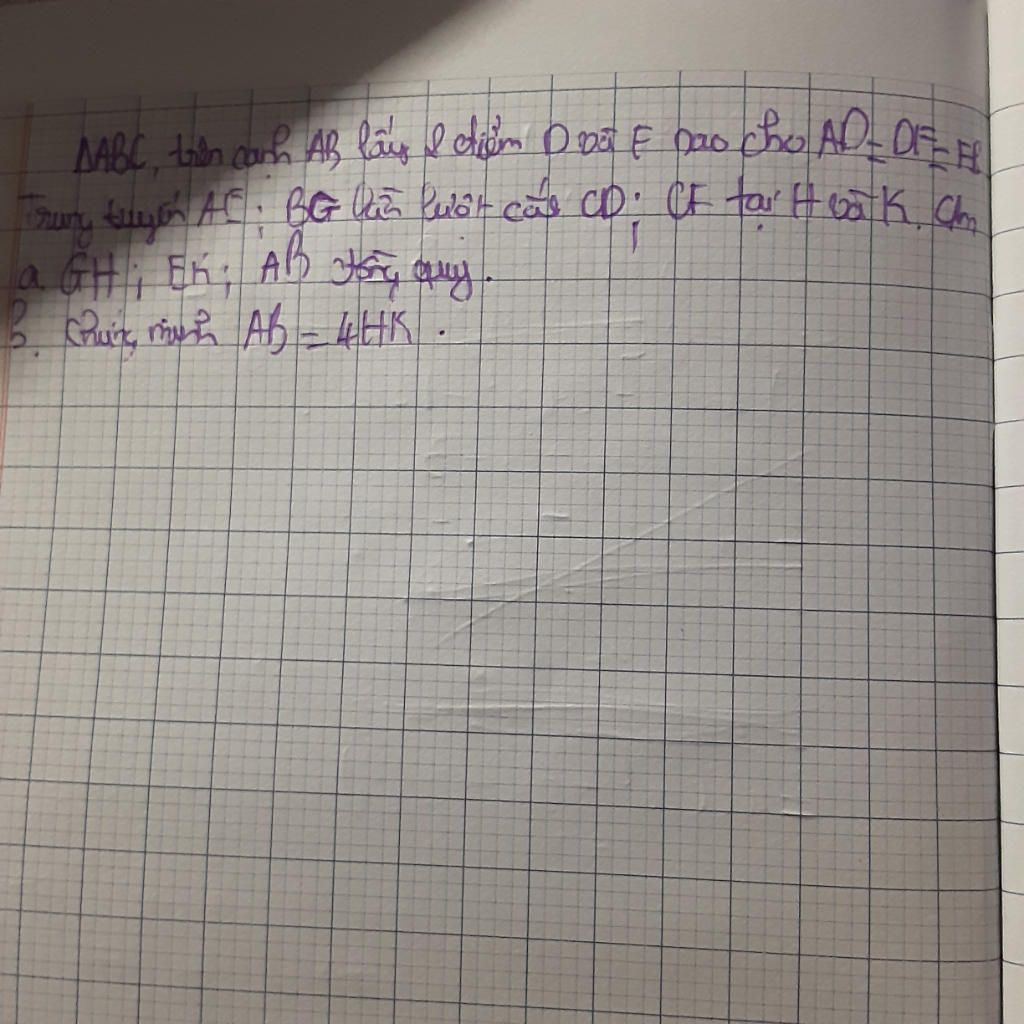 ΔABC, trên cạnh AB lấy 2 điểm D và F sao cho AD = DF = FB
Trung tuyến AE; BG lần lượt cắt CD; CF tại H và K. Cm
a GH; EK; AB đồng quy.
B. Chứng minh AB = 4HK.